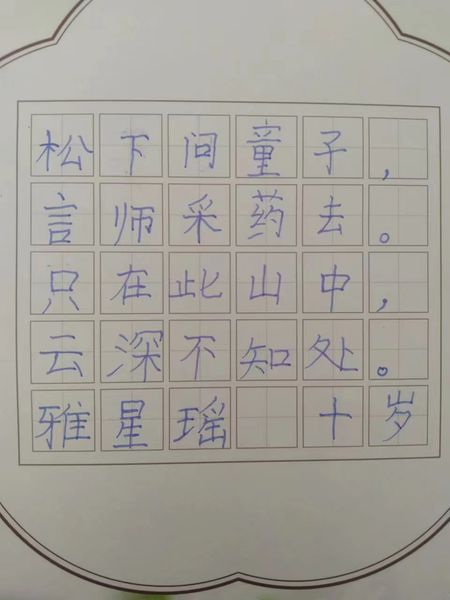 松下问童子，
言师采药去。
只在此山中，
云深不知处。
雅星瑶 十岁